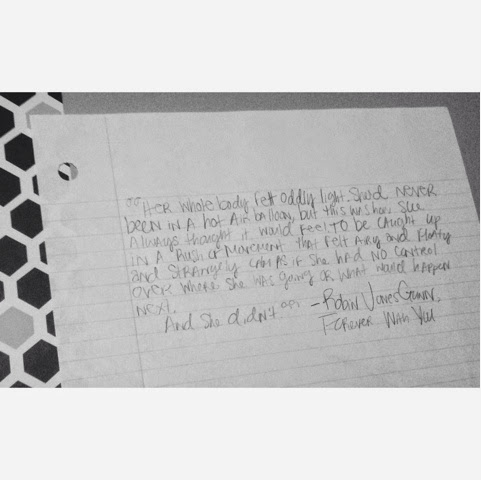 "Her whole body felt oddly light. She'd NEVER
been IN A hot Air balloon, but this was how she
Always thought it would feel. TO be caught up
IN A Rush of Movement that felt Airy and Floaty
and Strangely calm AS if She HAD NO Control
over where she was going or what would happen
Next.
And She didn't" -Robin Jones Gunn,
Forever With You